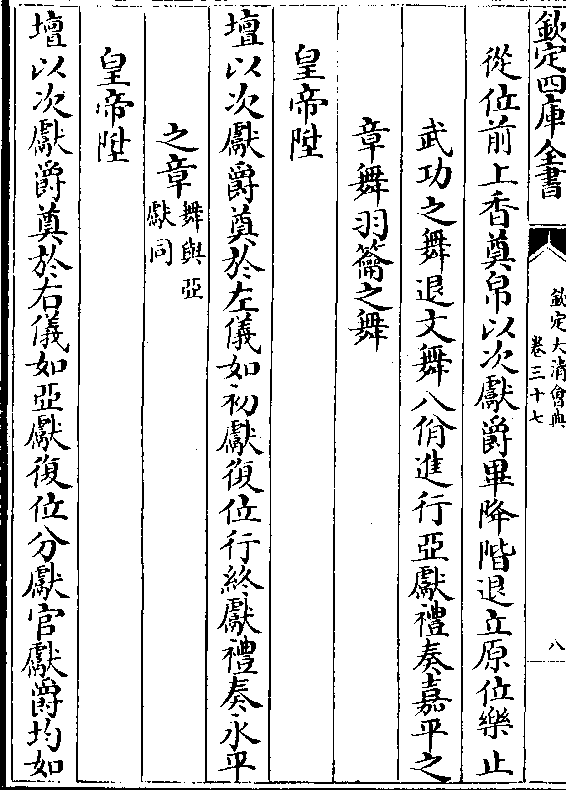 欽定四庫全書
欽定大清會典
卷三十七
八
從位前上香奠帛以次獻爵畢降階退立原位樂止
武功之舞退文舞八佾進行亞獻禮奏嘉平之
章舞羽籥之舞
皇帝陞
壇以次獻爵奠於左儀如初獻復位行終獻禮奏永平
之章舞與亞
獻同
皇帝陞
壇以次獻爵奠於右儀如亞獻復位分獻官獻爵均如